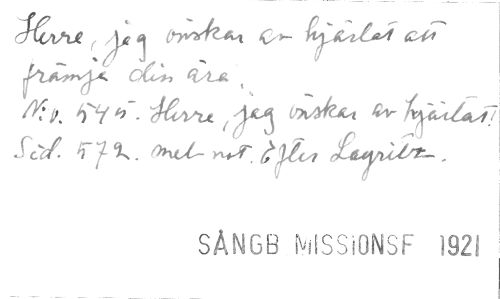 Herre, jag önskar av hjärtat att
främja din ära.
N:o. 545. Herre, jag önskar av hjärtat!
Sid. 572. mel. not. Efter Layritz.
SÅNGB MISSIONSF 1921